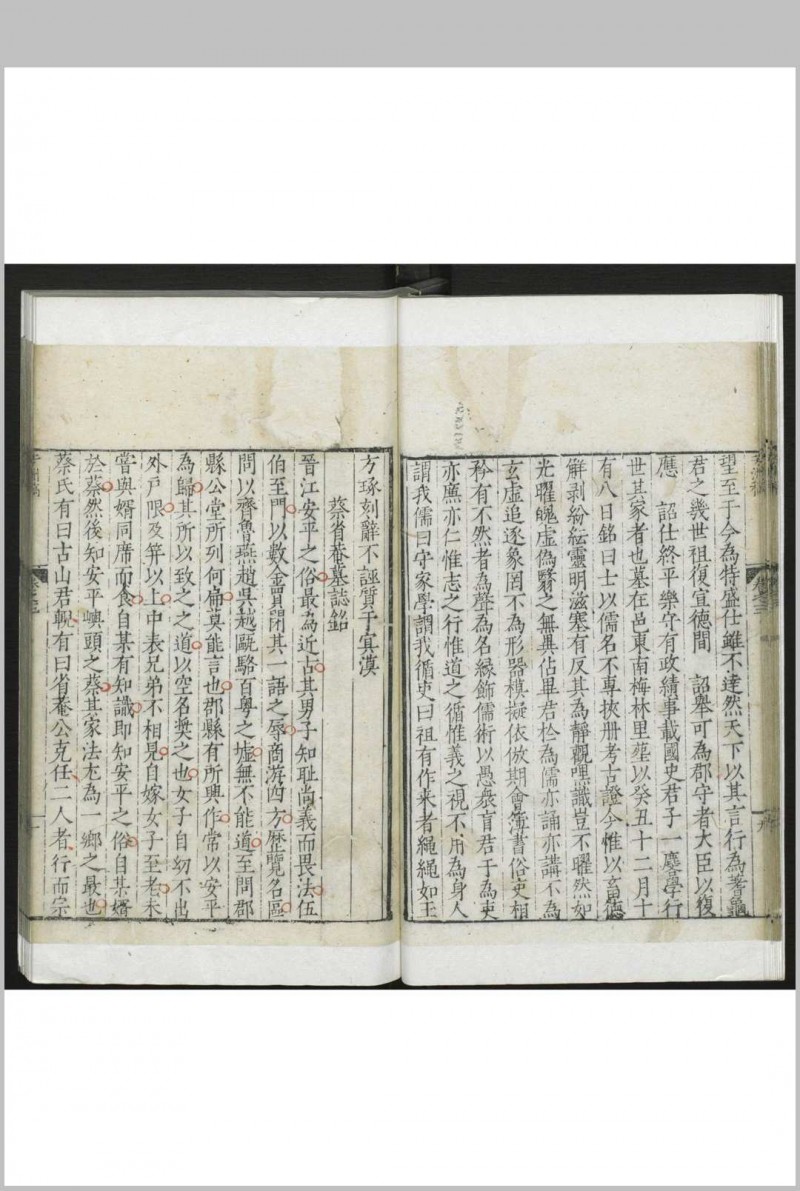 望至于今為特盛仕雖不達然天下以其言行為蓍龜
君之幾世祖復宣德間　詔舉可為郡守者大臣以復
應　詔仕終平樂守有政績事載國史君子一麐學行
世其家者也墓在邑東南梅林里塟以癸丑十二月十
有八日銘曰士以儒名不專挾册考古證今惟以畜德
解剥紛紜靈明滋塞有反其為靜觀嘿識豈不曜然如
光曜魄虚偽翳之無異佔畢君於為儒亦誦亦講不為
玄虚追逐象罔不為形器模擬依倣期會簿書俗吏相
矜有不然者為聲為名緣飾儒術以愚衆盲君于為吏
亦廉亦仁惟志之行惟道之循惟義之視不用為身人
謂我儒曰守家學謂我循吏曰祖有作来者繩繩如玉
方琢刻辭不誣質于㝠漠
蔡省菴墓誌銘
晉江安平之俗最為近古其男子知耻尚義而畏法伍
伯至門以數金賈閉其一語之辱商游四方歷覽名區
問以齊魯燕趙吳越甌駱百粤之墟無不能道至問郡
縣公堂所列何扁莫能言也郡縣有所興作常以安平
為歸其所以致之之道以空名奬之也女子自幼不出
外戶限及笄以上中表兄弟不相見自嫁女子至老未
甞與婿同席而食自某有知識即知安平之俗自其婿
於蔡然後知安平嶼頭之蔡其家法尤為一鄉之最也
蔡氏有曰古山君輗有曰省菴公克任二人者行而宗